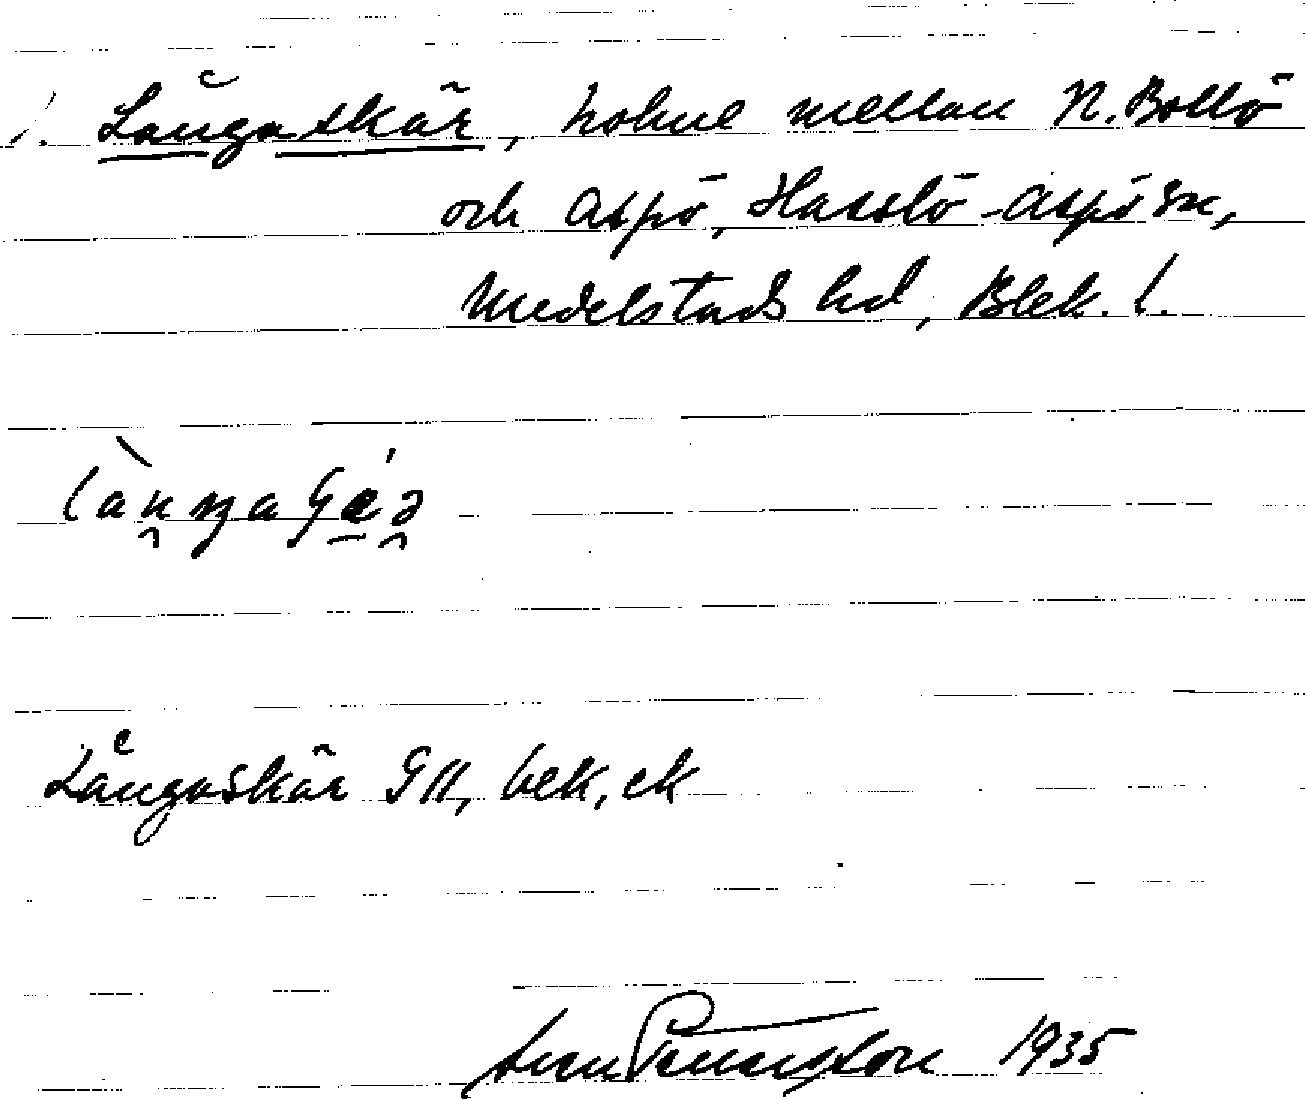 1. Långaskär, holme mellan N. Bollö
och Aspö, Hasslö-Aspö sn,
Medelstads hd, Blek. l.
Långaskär GK, bek, ek
1935